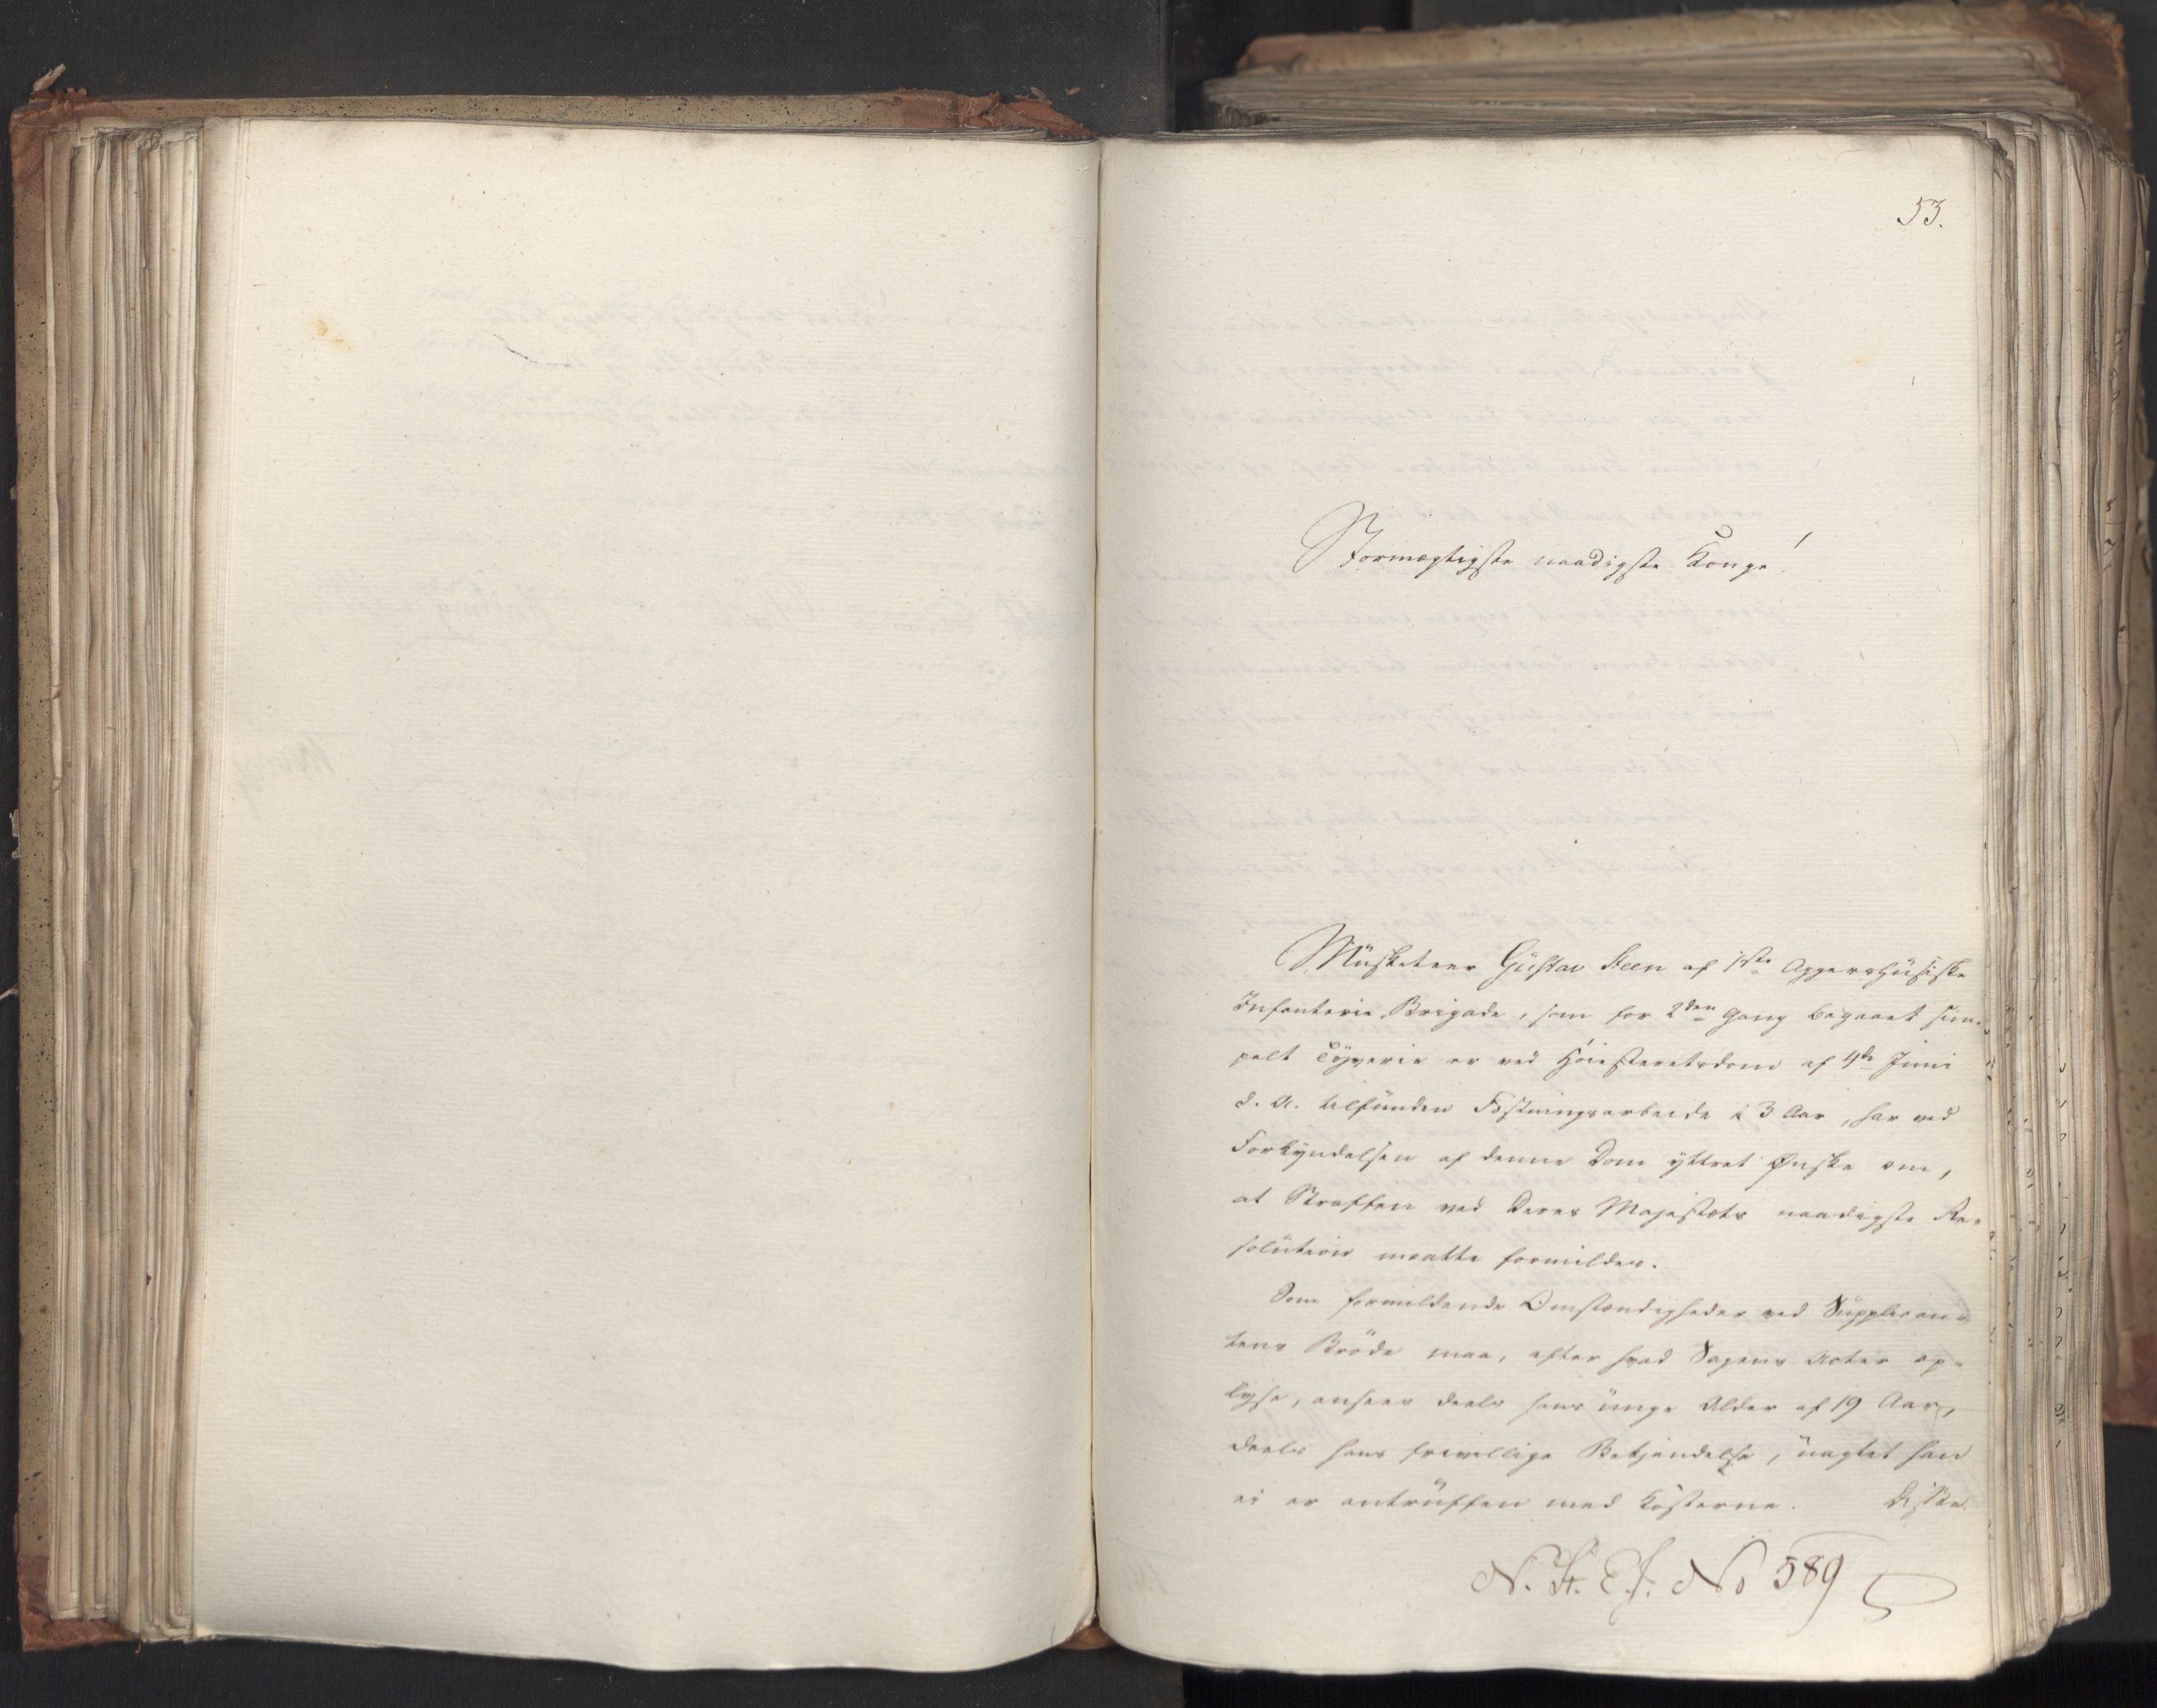 53.
Stormægtigste naadigste Konge!
Musketeer Gustav Steen af 1ste Aggershusiske
Infanterie Brigade, som for 2den Gang begaaet sim-
pelt Tyverie er ved Høiesteretsdom af 4de Juni
d. A. tilfunden Fæstningsarbeide i 3 Aar, har ved
Forkyndelsen af denne Dom yttret Ønske om,
at Straffen ved Deres Majestæts naadigste Re-
solution maatte formildes.
Som formildende Omstændigheder ved Supplican-
tens Brøde maa, efter hvad Sagens Acter op-
lyse, ansees deels hans unge Alder af 19 Aar,
deels hans frivillige Bekjendelse, uagtet han
ei er antruffen med Kosterne. Disse
N. St. E. J. No 589